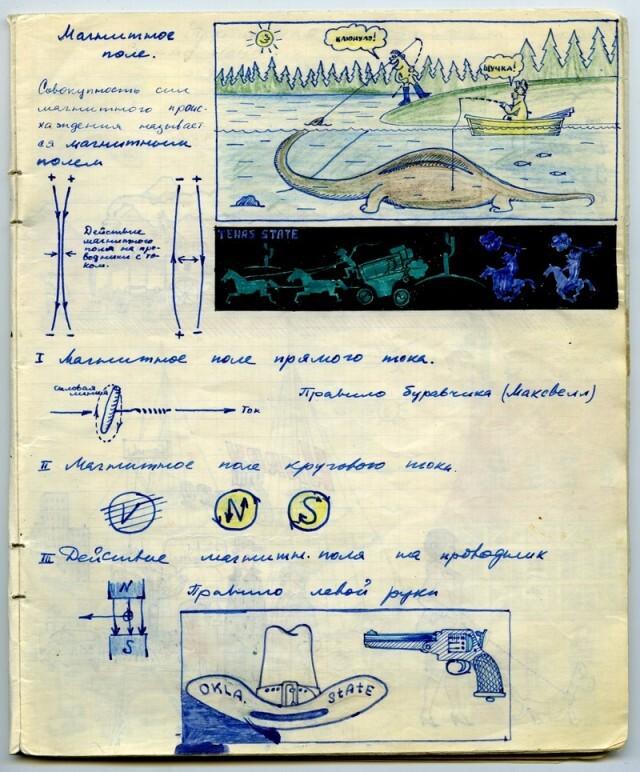 Магнитное
поле.
КЛЮНУЛО!
ЩУЧКА!
Совокупность сил
магнитного проис-
хождения называет
ся магнитным
полем
+ + - +
Действие
магнитного
поля на про-
водники с то-
ком.
- - + -
TEXAS STATE
I Магнитное поле прямого тока.
силовая
линия
Ток
Правило буравчика (Максвелл)
II Магнитное поле кругового тока.
N S
III Действие магнитн. поля на проводник
Правило левой руки
N
S
OKLA. STATE